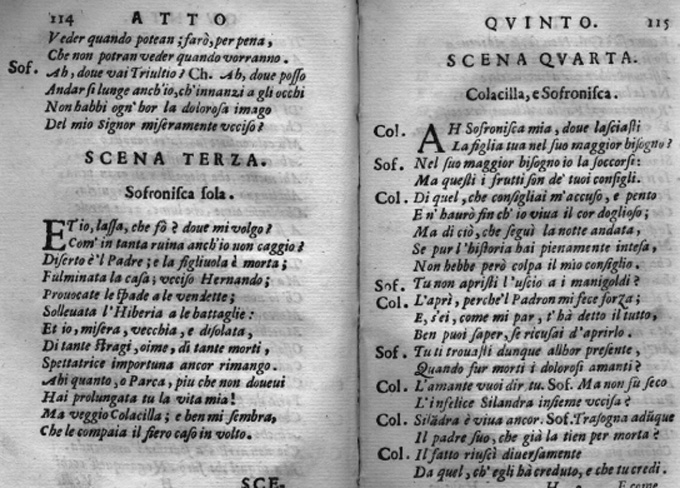 114 ATTO
Veder quando potean; farò, per pena,
Che non potran veder quando vorranno.
Sof. Ah, doue vai Triultio? Ch. Ah, doue posso
Andar sì lunge anch'io, ch'innanzi a gli occhi
Non habbi ogn'hor la dolorosa imago
Del mio Signor miseramente vcciso?
SCENA TERZA.
Sofronisca sola.
ET io, lassa, che fò? doue mi volgo?
Com' in tanta ruina anch'io non caggio?
Diserto è'l Padre; e la figliuola è morta;
Fulminata la casa; vcciso Hernando;
Prouocate le spade a le vendette;
Solleuata l'Hiberia a le battaglie:
Et io, misera, vecchia, e disolata,
Di tante stragi, oime, di tante morti,
Spettatrice importuna ancor rimango.
Ahi quanto, o Parca, piu che non doueui
Hai prolungata tu la vita mia!
Ma veggio Colacilla; e ben mi sembra,
Che le compaia il fiero caso in volto.
SCE-
QVINTO. 115
SCENA QVARTA.
Colacilla, e Sofronisca.
Col. AH Sofronisca mia, doue lasciasti
La figlia tua nel suo maggior bisogno?
Sof. Nel suo maggior bisogno io la soccorsi:
Ma questi i frutti son de' tuoi consigli.
Col. Di quel, che consigliai m'accuso, e pento
E n' haurò fin ch' io viua il cor doglioso;
Ma di ciò, che seguì la notte andata,
Se pur l'historia hai pienamente intesa,
Non hebbe però colpa il mio consiglio.
Sof. Tu non apristi l'vscio a i manigoldi?
Col. L'aprì, perche'l Padron mi fece forza;
E, s'ei, come mi par, t'hà detto il tutto,
Ben puoi saper, se ricusai d'aprirlo.
Sof. Tu ti trouasti dunque allhor presente,
Quando fur morti i dolorosi amanti?
Col. L'amante vuoi dir tu. Sof. Ma non fù seco
L'infelice Silandra insieme vccisa?
Col. Silãdra è viua ancor. Sof. Trasogna adũque
Il padre suo, che già la tien per morta?
Col. Il fatto riuscì diuersamente
Da quel, ch' egli hà creduto, e che tu credi.
H E come